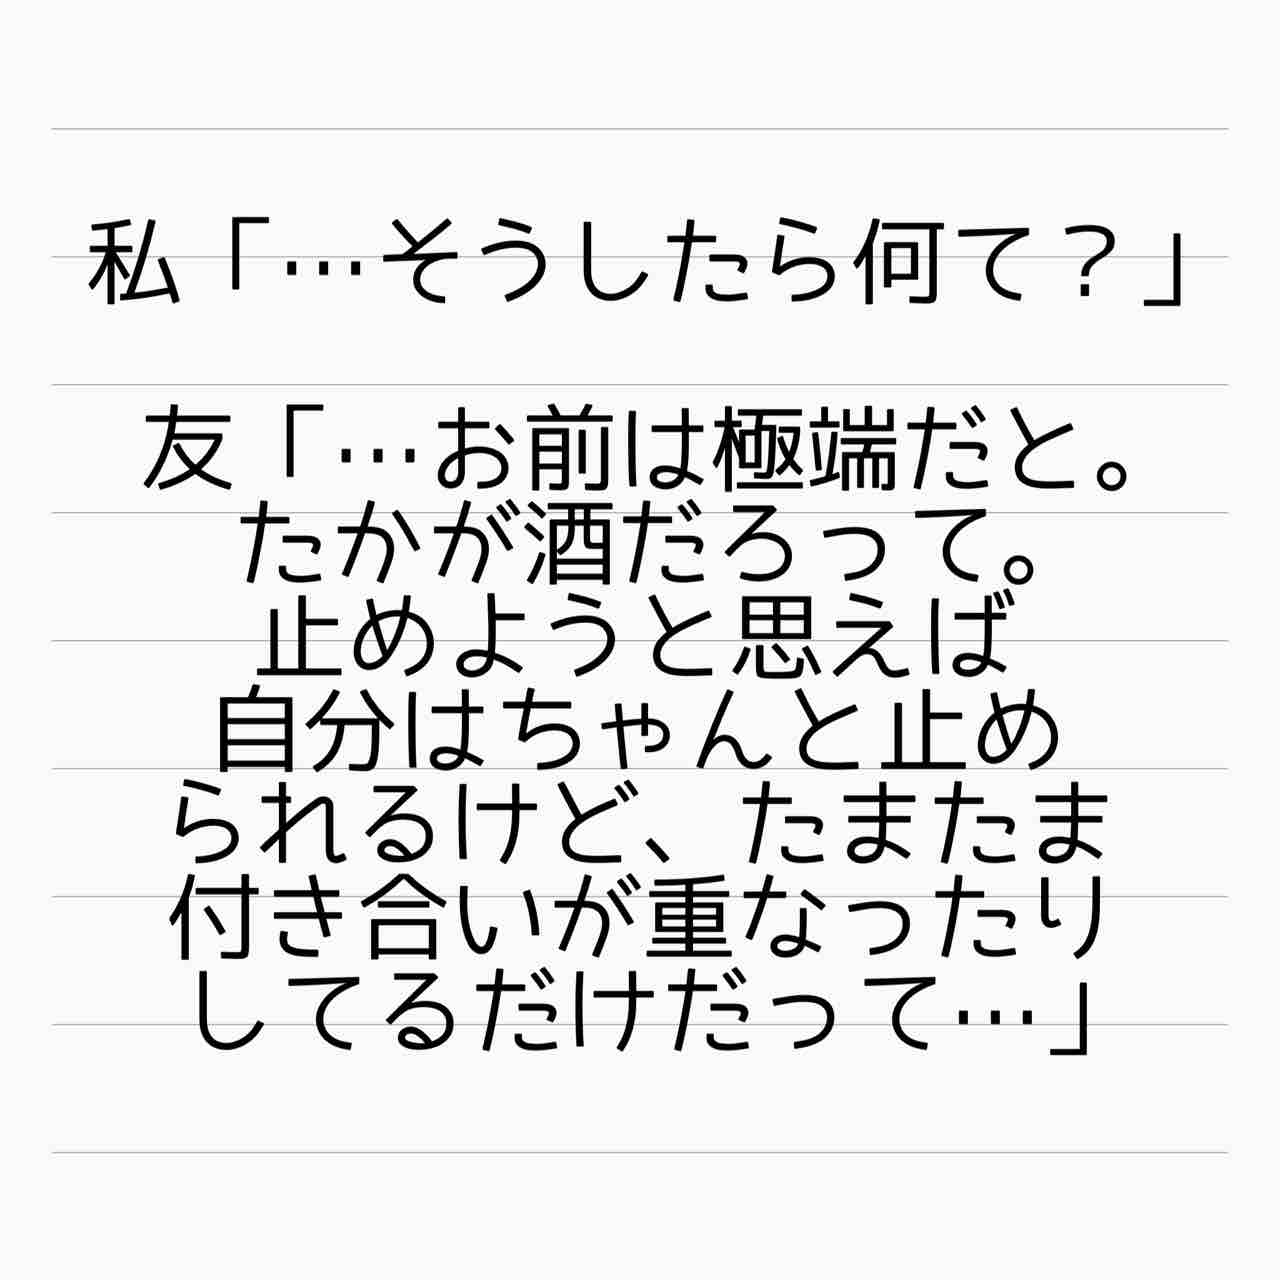 私「…そうしたら何て？」
友「…お前は極端だと。
たかが酒だろって。
止めようと思えば
自分はちゃんと止め
られるけど、たまたま
付き合いが重なったり
してるだけだって…」